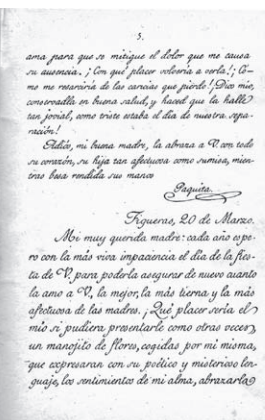 5.
ama para que se mitigue el dolor que me causa
su ausencia. ¡Con qué placer volveria a verla! ¡Có-
mo me resarciria de las caricias que pierdo! ¡Dios mio,
conservadla en buena salud, y haced que la halle
tan jovial, como triste estaba el dia de nuestra sepa-
ración!
Adiós, mi buena madre, la abraza a V. con todo
su corazón, su hija tan afectuosa como sumisa, mien-
tras besa rendida sus manos
Paquita.
Figueras, 20 de Marzo.
Mi muy querida madre: cada año espe-
ro con la más viva impaciencia el dia de la fies-
ta de V. para poderla asegurar de nuevo cuanto
la amo a V., la mejor, la más tierna y la más
afectuosa de las madres. ¡Qué placer seria el
mio si pudiera presentarle como otras veces,
un manojito de flores, cogidas por mi misma,
que expresaran con su poético y misterioso len-
guaje, los sentimientos de mi alma, abrazarla